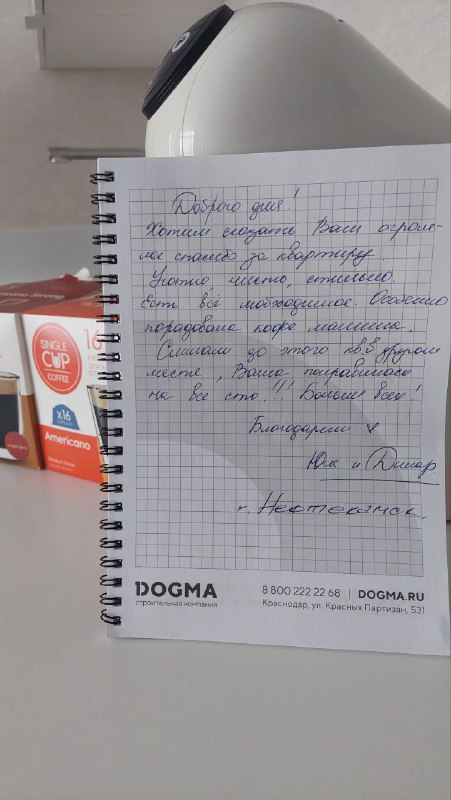 Доброго дня!
Хотим сказать Вам огром-
ное спасибо за квартиру.
Уютно, чисто, стильно.
Есть всё необходимое. Особенно
порадовала кофе машина.
Снимали до этого кв. в другом
месте, Ваша понравилась
на все сто!!! Больше всех!
Благодарим
и Динар
г. Нефтекамск.
1DOGMA
строительная компания
8 800 222 22 68 | DOGMA.RU
Краснодар, ул. Красных Партизан, 531
SINGLE
CUP
COFFEE
16
x16
Americano